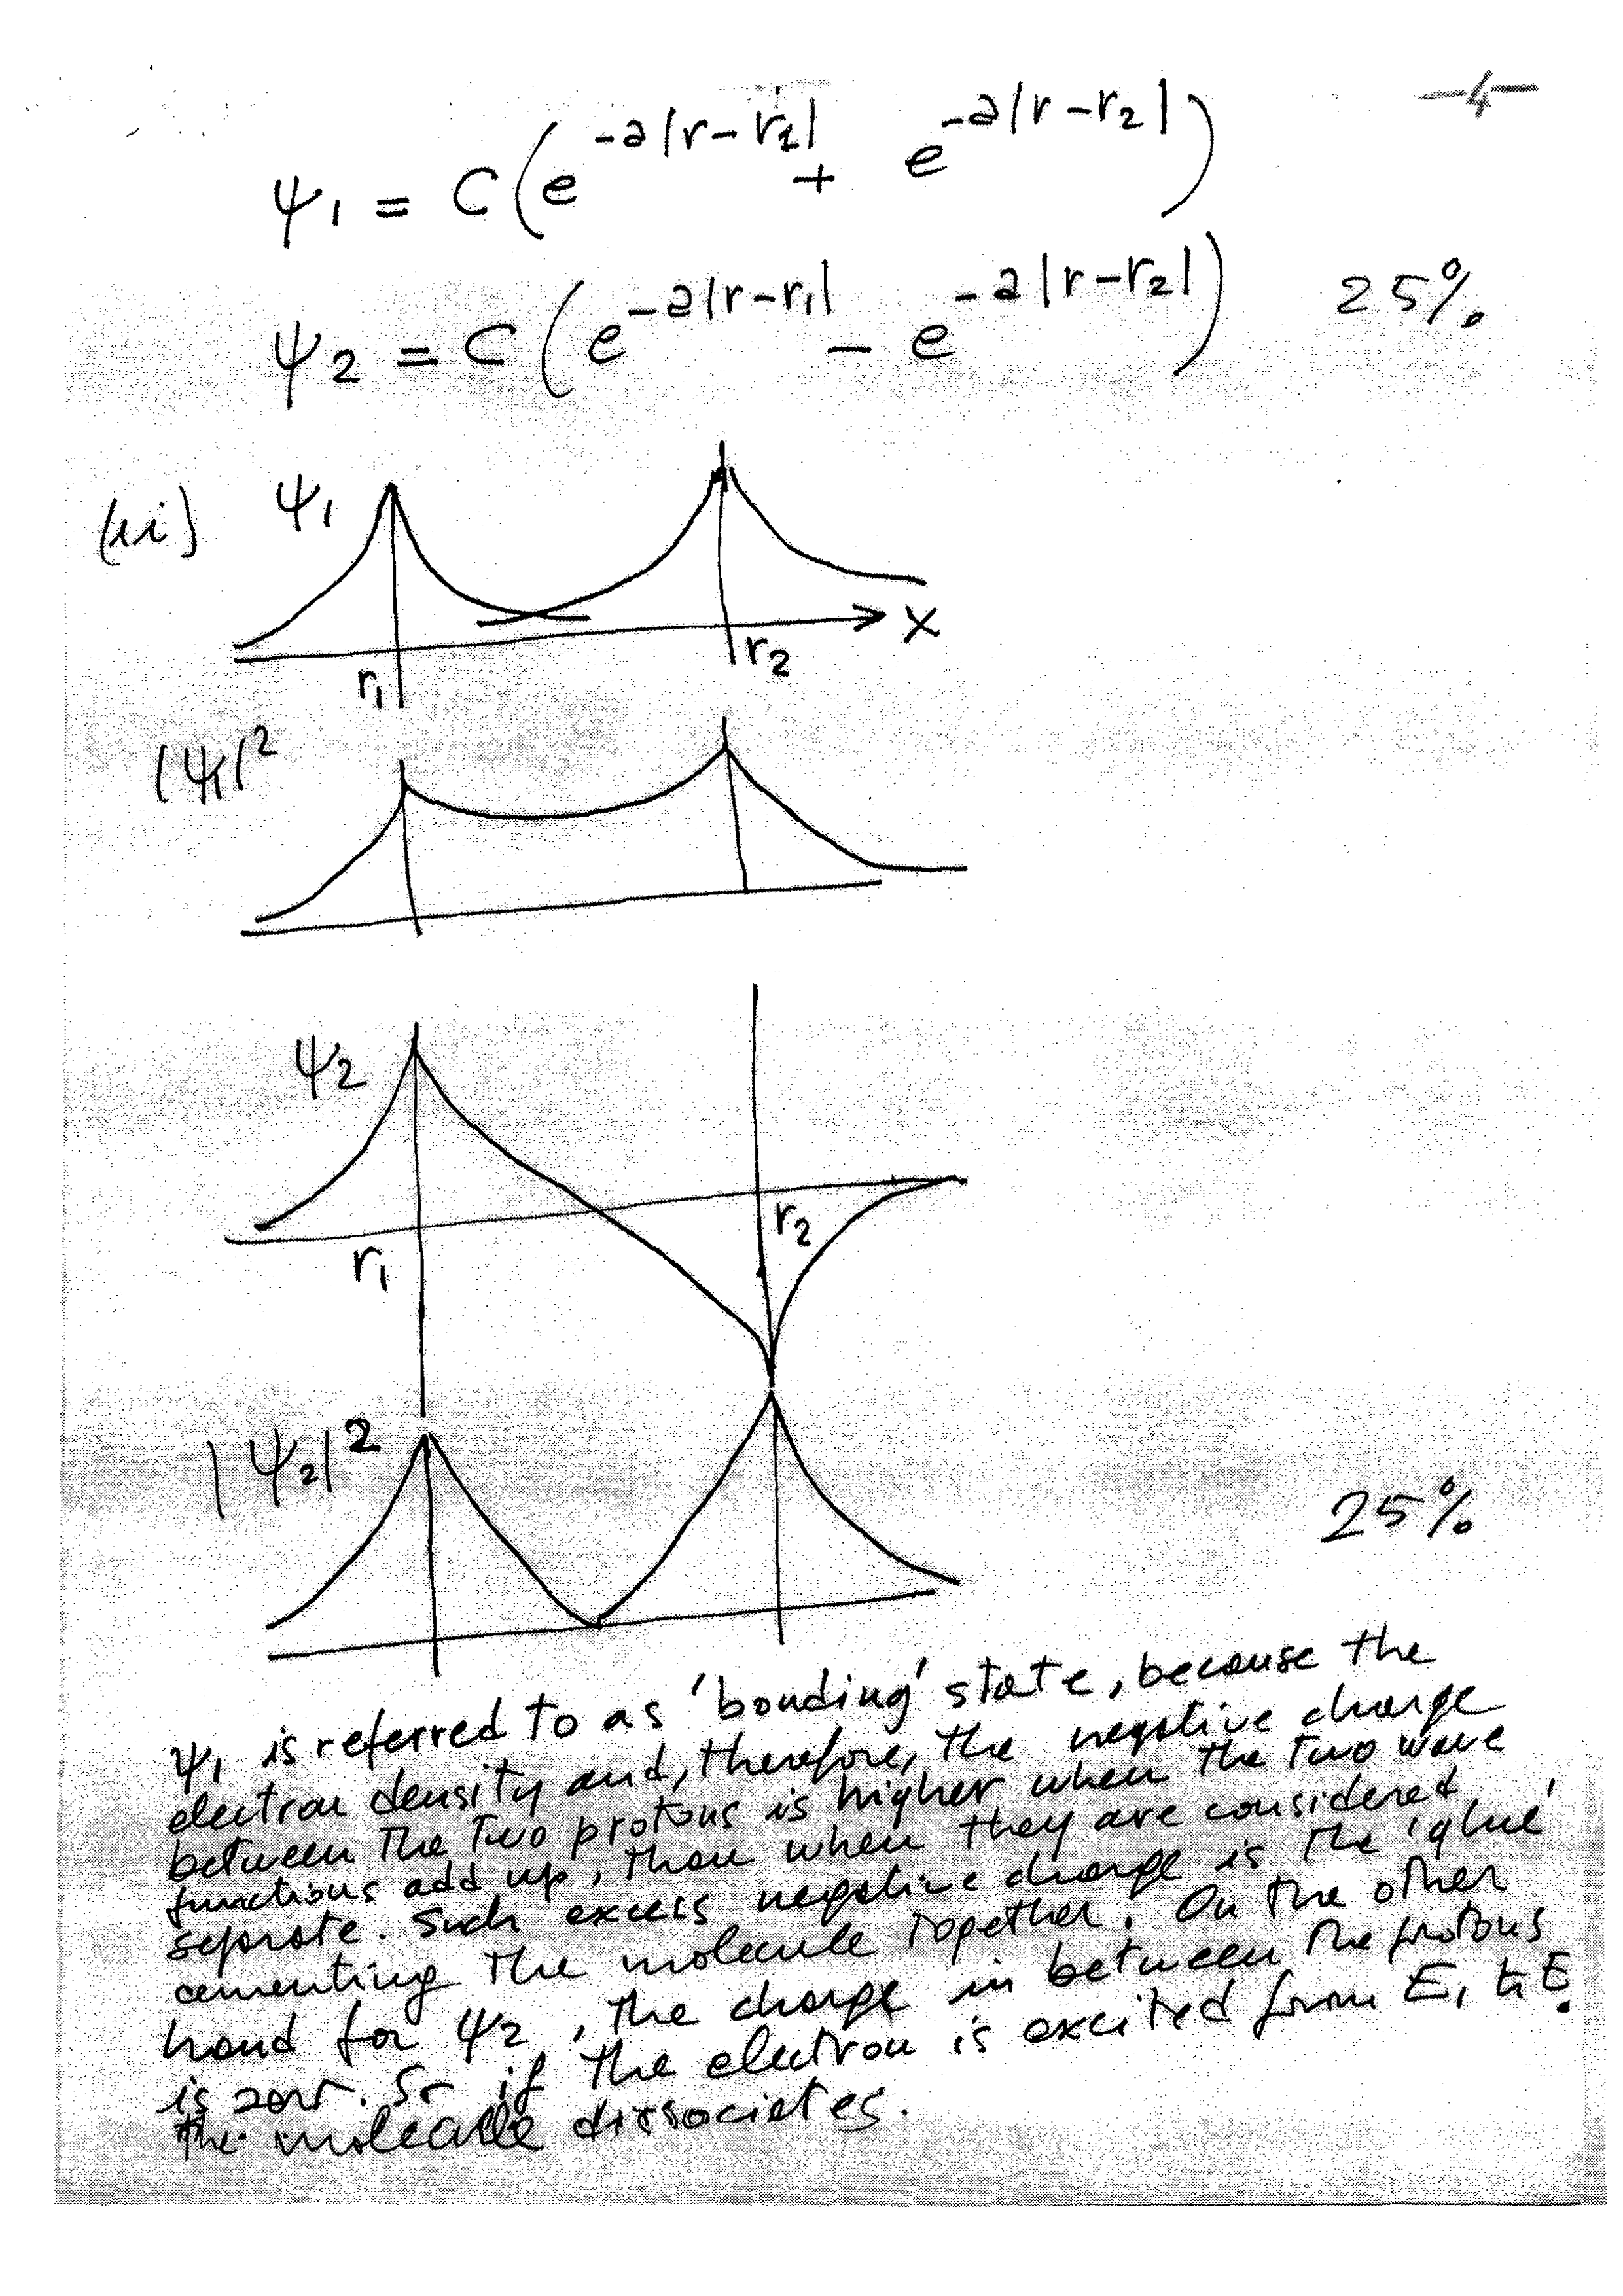 -4-
ψ1 = C(e^{-a|r-r1|} + e^{-a|r-r2|})
ψ2 = C(e^{-a|r-r1|} - e^{-a|r-r2|}) 25%
(ii) ψ1
X
r1 r2
|ψ1|²
ψ2
r1 r2
|ψ2|²
25%
ψ1 is referred to as 'bonding' state, because the
electron density and, therefore, the negative charge
between the two protons is higher when the two wave
functions add up, than when they are considered
separate. Such excess negative charge is the 'glue'
cementing the molecule together. On the other
hand for ψ2, the charge in between the protons
is zero. So if the electron is excited from E1 to E2
the molecule dissociates.